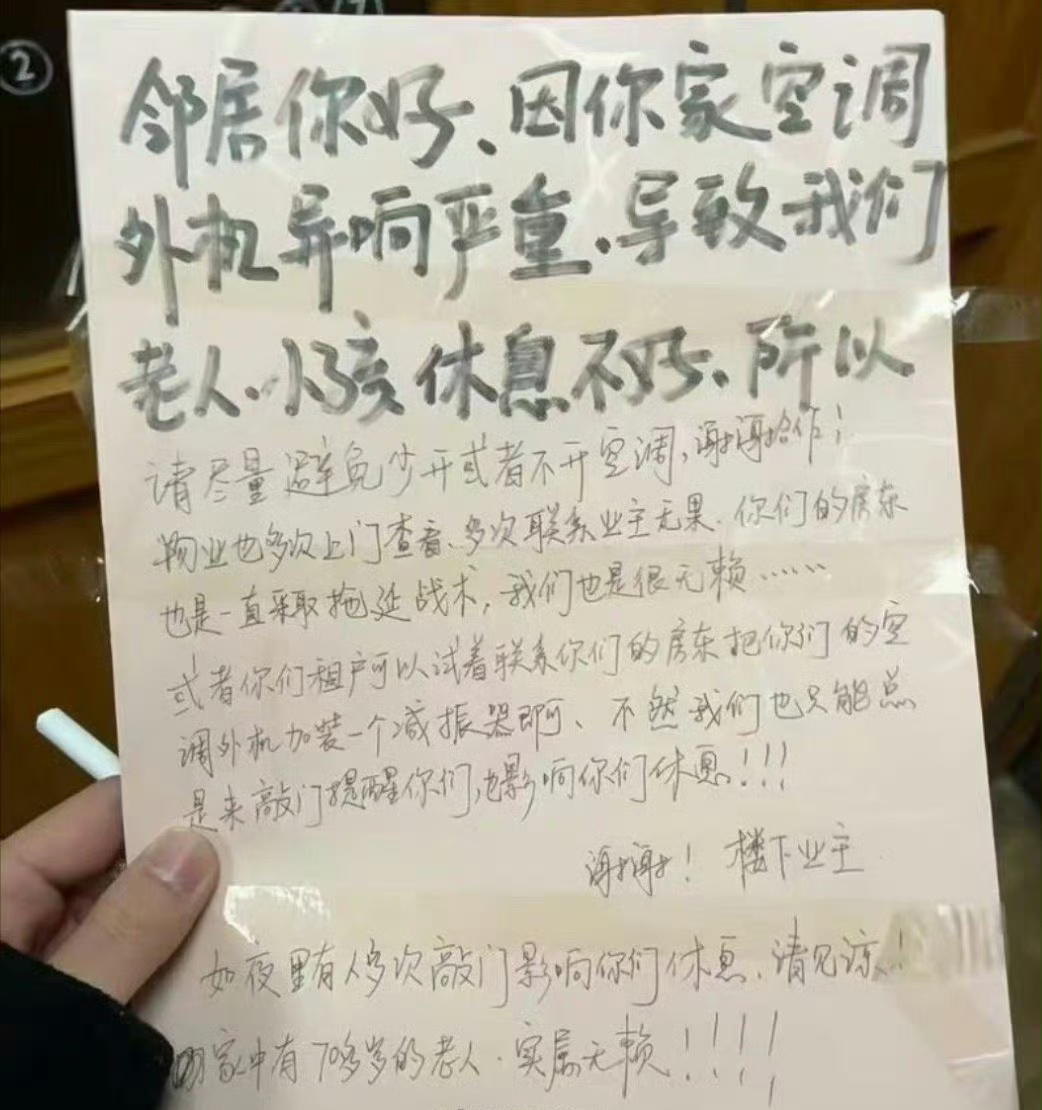 ②
邻居你好、因你家空调
外机异响严重、导致我们
老人、小孩休息不好、所以
请尽量避免少开或者不开空调,谢谢合作;
物业也多次上门查看、多次联系业主无果、你们的房东
也是一直采取拖延战术,我们也是很无赖……
或者你们租户可以试着联系你们的房东把你们的空
调外机加装一个减振器即可、不然我们也只能总
是来敲门提醒你们,也影响你们休息!!!
谢谢! 楼下业主
如夜里有人多次敲门影响你们休息、请见谅!
家中有70多岁的老人、实属无赖!!!!